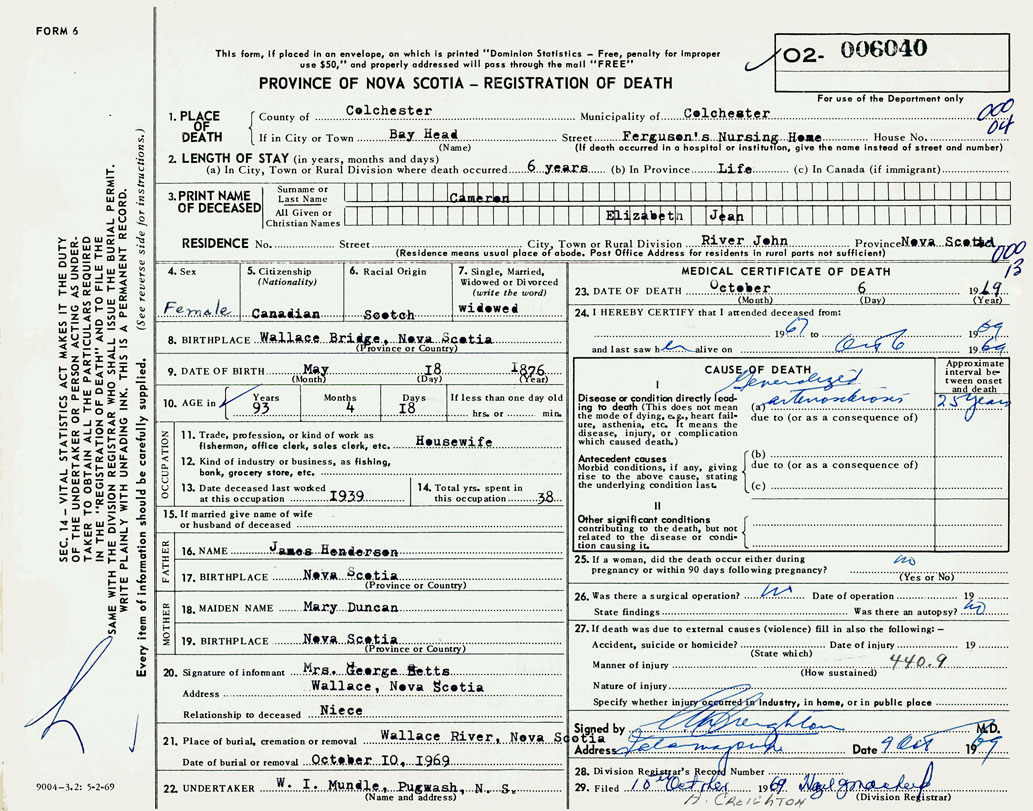 FORM 6
This form, if placed in an envelope, on which is printed "Dominion Statistics – Free, penalty for improper
use $50," and properly addressed will pass through the mail "FREE"
PROVINCE OF NOVA SCOTIA – REGISTRATION OF DEATH
02- 006040
For use of the Department only
000
04
1. PLACE OF DEATH
County of Colchester Municipality of Colchester
If in City or Town Bay Head Street Ferguson's Nursing Home House No.
(Name) (If death occurred in a hospital or institution, give the name instead of street and number)
2. LENGTH OF STAY (in years, months and days)
(a) In City, Town or Rural Division where death occurred 6 years (b) In Province Life (c) In Canada (if immigrant)
3. PRINT NAME OF DECEASED
Surname or Last Name Cameron
All Given or Christian Names Elizabeth Jean
RESIDENCE No. Street City, Town or Rural Division River John Province Nova Scotia
(Residence means usual place of abode. Post Office Address for residents in rural parts not sufficient)
000
13
4. Sex
Female
5. Citizenship
(Nationality)
Canadian
6. Racial Origin
Scotch
7. Single, Married,
Widowed or Divorced
(write the word)
widowed
8. BIRTHPLACE Wallace Bridge, Nova Scotia
(Province or Country)
9. DATE OF BIRTH May 18 1876
(Month) (Day) (Year)
10. AGE in Years Months Days If less than one day old
93 4 18 hrs. or min.
OCCUPATION
11. Trade, profession, or kind of work as
fisherman, office clerk, sales clerk, etc. Housewife
12. Kind of industry or business, as fishing,
bank, grocery store, etc.
13. Date deceased last worked
at this occupation 1939
14. Total yrs. spent in
this occupation 38
15. If married give name of wife
or husband of deceased
FATHER
16. NAME James Henderson
17. BIRTHPLACE Nova Scotia
(Province or Country)
MOTHER
18. MAIDEN NAME Mary Duncan
19. BIRTHPLACE Nova Scotia
(Province or Country)
20. Signature of informant Mrs. George Betts
Address Wallace, Nova Scotia
Relationship to deceased Niece
21. Place of burial, cremation or removal Wallace River, Nova Scotia
Date of burial or removal October 10, 1969
22. UNDERTAKER W. I. Mundle, Pugwash, N. S.
(Name and address)
MEDICAL CERTIFICATE OF DEATH
23. DATE OF DEATH October 6 1969
(Month) (Day) (Year)
24. I HEREBY CERTIFY that I attended deceased from:
1967 to 1969
and last saw her alive on Oct 6 1969
CAUSE OF DEATH
Approximate
interval be-
tween onset
and death
I
Disease or condition directly lead-
ing to death (This does not mean
the mode of dying, e.g., heart fail-
ure, asthenia, etc. It means the
disease, injury, or complication
which caused death.)
Generalized
(a) arteriosclerosis 25 years
due to (or as a consequence of)
Antecedent causes
Morbid conditions, if any, giving
rise to the above cause, stating
the underlying condition last.
(b)
due to (or as a consequence of)
(c)
II
Other significant conditions
contributing to the death, but not
related to the disease or condi-
tion causing it.
25. If a woman, did the death occur either during
pregnancy or within 90 days following pregnancy? no
(Yes or No)
26. Was there a surgical operation? no Date of operation 19
State findings Was there an autopsy? no
27. If death was due to external causes (violence) fill in also the following: –
Accident, suicide or homicide? Date of injury 19
(State which)
Manner of injury 440.9
(How sustained)
Nature of injury
Specify whether injury occurred in industry, in home, or in public place
Signed by Creighton M.D.
Address Tatamagouche Date 9 Oct 1969
28. Division Registrar's Record Number
29. Filed 10th October 1969
(Division Registrar)
CREIGHTON
SEC. 14 – VITAL STATISTICS ACT MAKES IT THE DUTY
OF THE UNDERTAKER OR PERSON ACTING AS UNDER-
TAKER TO OBTAIN ALL THE PARTICULARS REQUIRED
IN THE "REGISTRATION OF DEATH" AND TO FILE THE
SAME WITH THE DIVISION REGISTRAR WHO SHALL ISSUE THE BURIAL PERMIT.
WRITE PLAINLY WITH UNFADING INK. THIS IS A PERMANENT RECORD.
Every item of information should be carefully supplied. (See reverse side for instructions.)
9004-3.2: 5-2-69